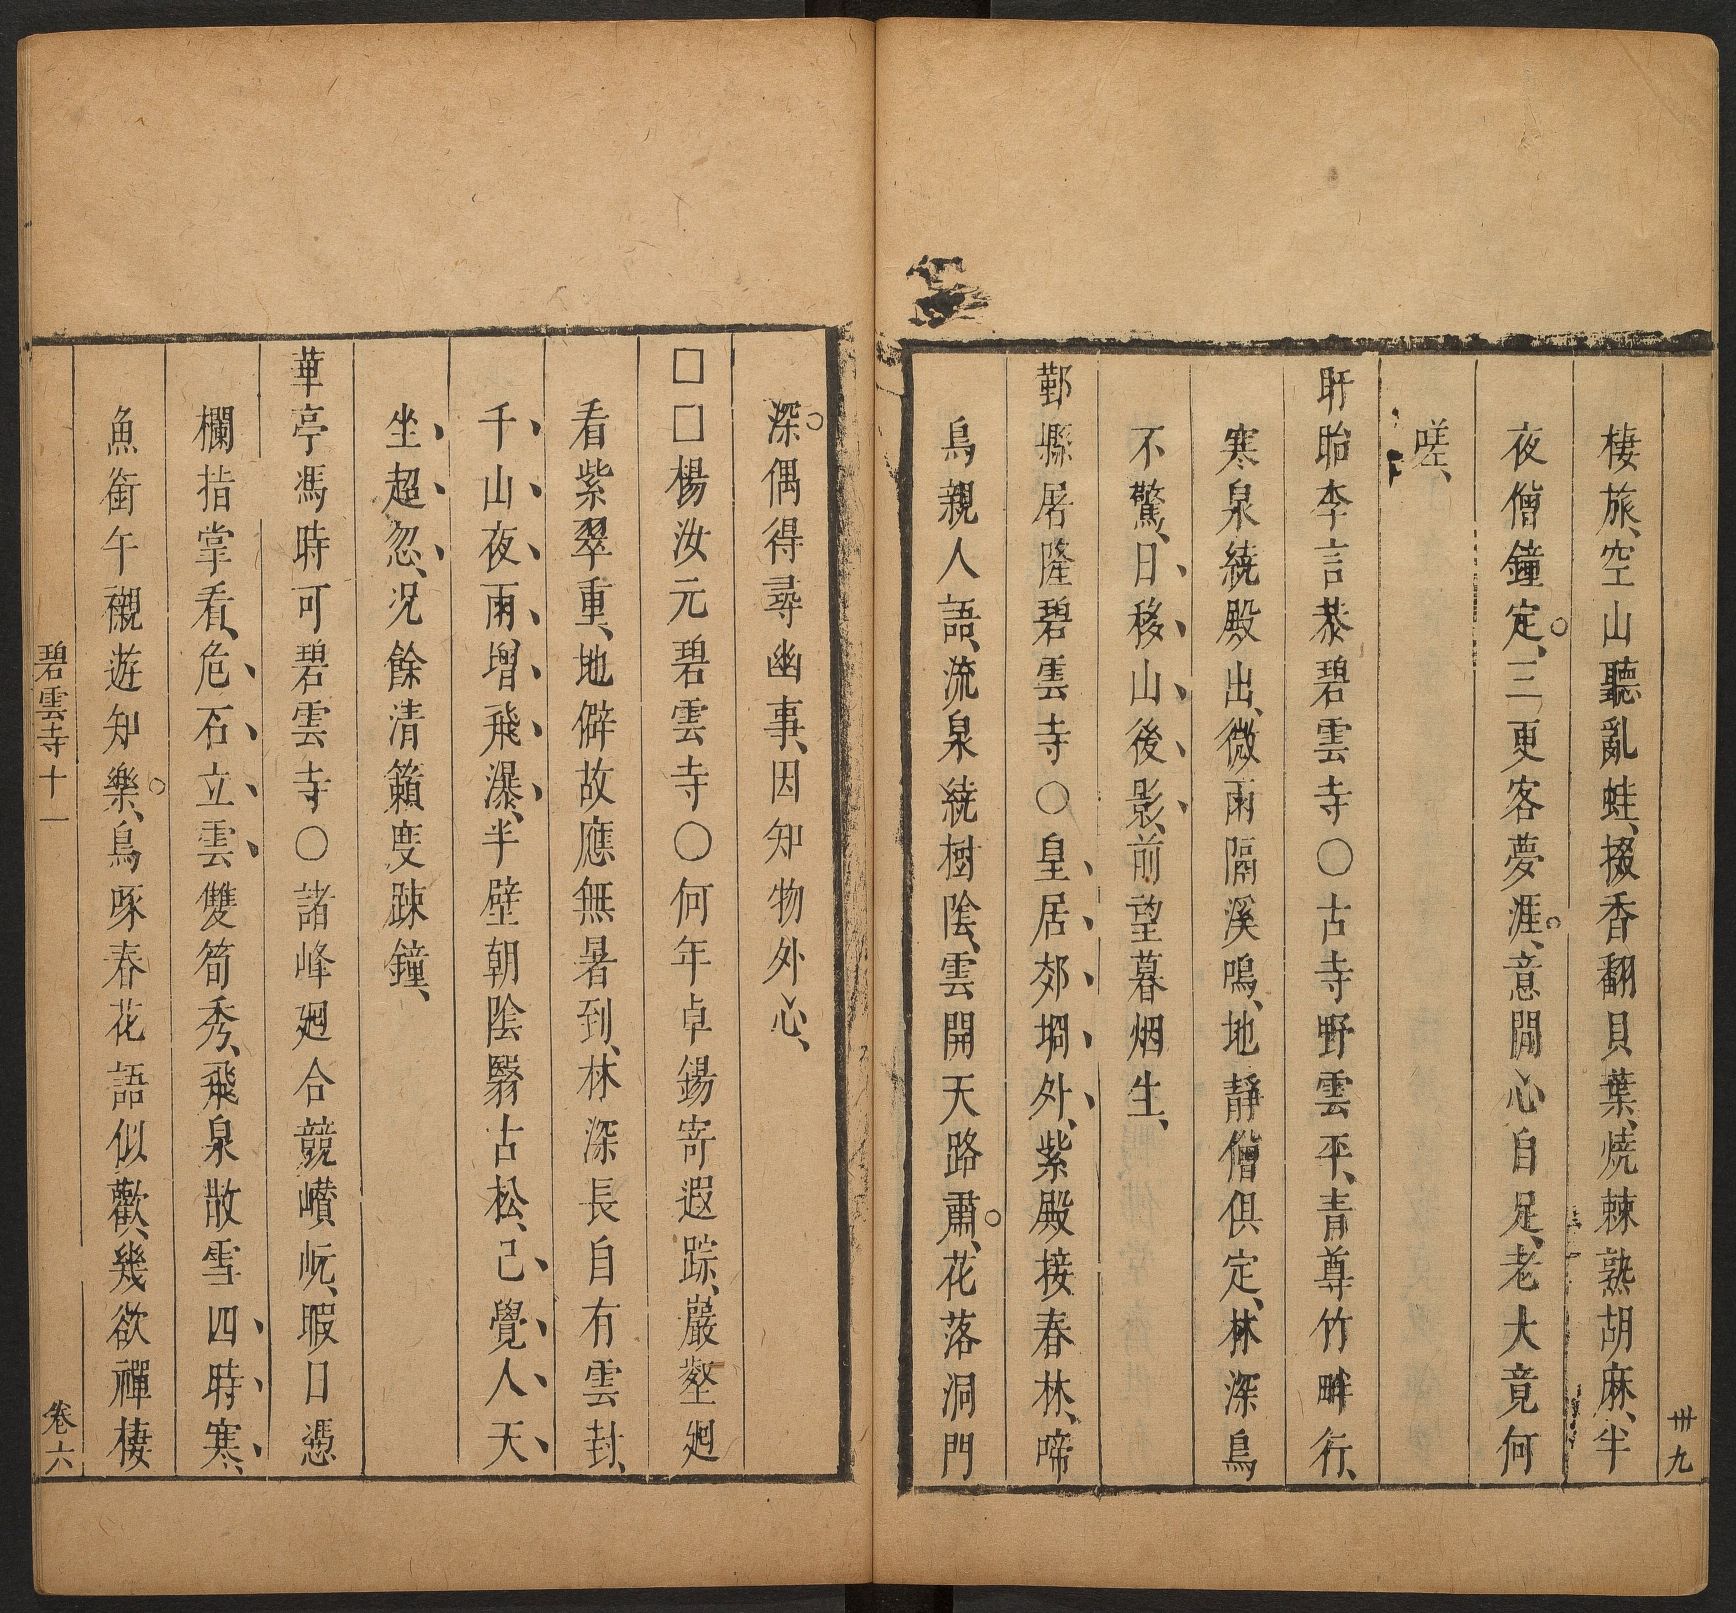 卅九
棲旅、空山聽亂蛙、掇香翻貝葉、燒棘熟胡麻、半
夜僧鐘定、三更客夢涯、意閒心自足、老大竟何
嗟、
盱眙李言恭碧雲寺○古寺野雲平、青尊竹畔行、
寒泉繞殿出、微雨隔溪鳴、地靜僧俱定、林深鳥
不驚、日移山後影、前望暮烟生、
鄞縣屠隆碧雲寺○皇居郊坰外、紫殿接春林、啼
鳥親人語、流泉繞樹陰、雲開天路肅、花落洞門
深、偶得尋幽事、因知物外心、
□□楊汝元碧雲寺○何年卓錫寄遐踪、巖壑廻
看紫翠重、地僻故應無暑到、林深長自有雲封、
千山夜雨增飛瀑、半壁朝陰翳古松、已覺人天
坐超忽、况餘清籟度踈鐘、
華亭馮時可碧雲寺○諸峰廻合競巑岏、暇日憑
欄指掌看、危石立雲雙筍秀、飛泉散雪四時寒、
魚銜午襯遊知樂、鳥啄春花語似歡、幾欲禪棲
碧雲寺十一
卷六